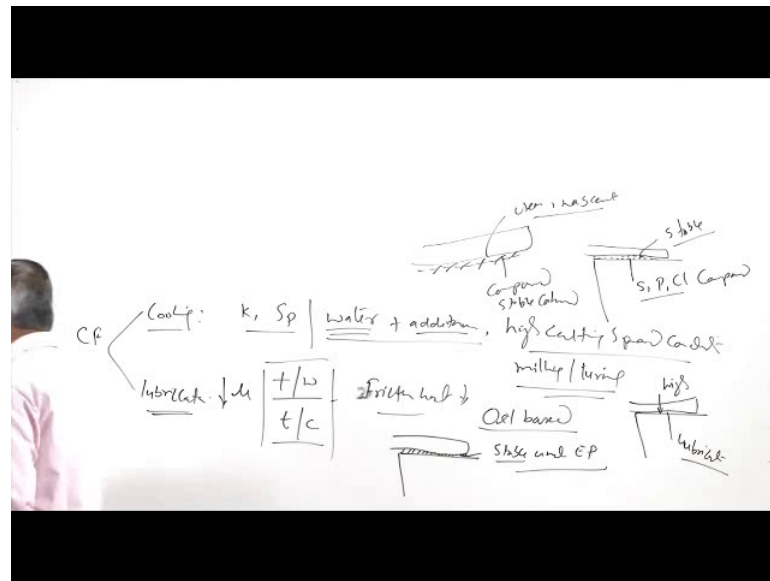 clean, nascent
stable
Compound
stable
S, P, Cl Compound
CF
Cooling: K, Sp | water + additives, high cutting speed
milling / turning
high
lubricate ↓ μ | t/w
t/c
Friction heat ↓
Oil based
stable EP